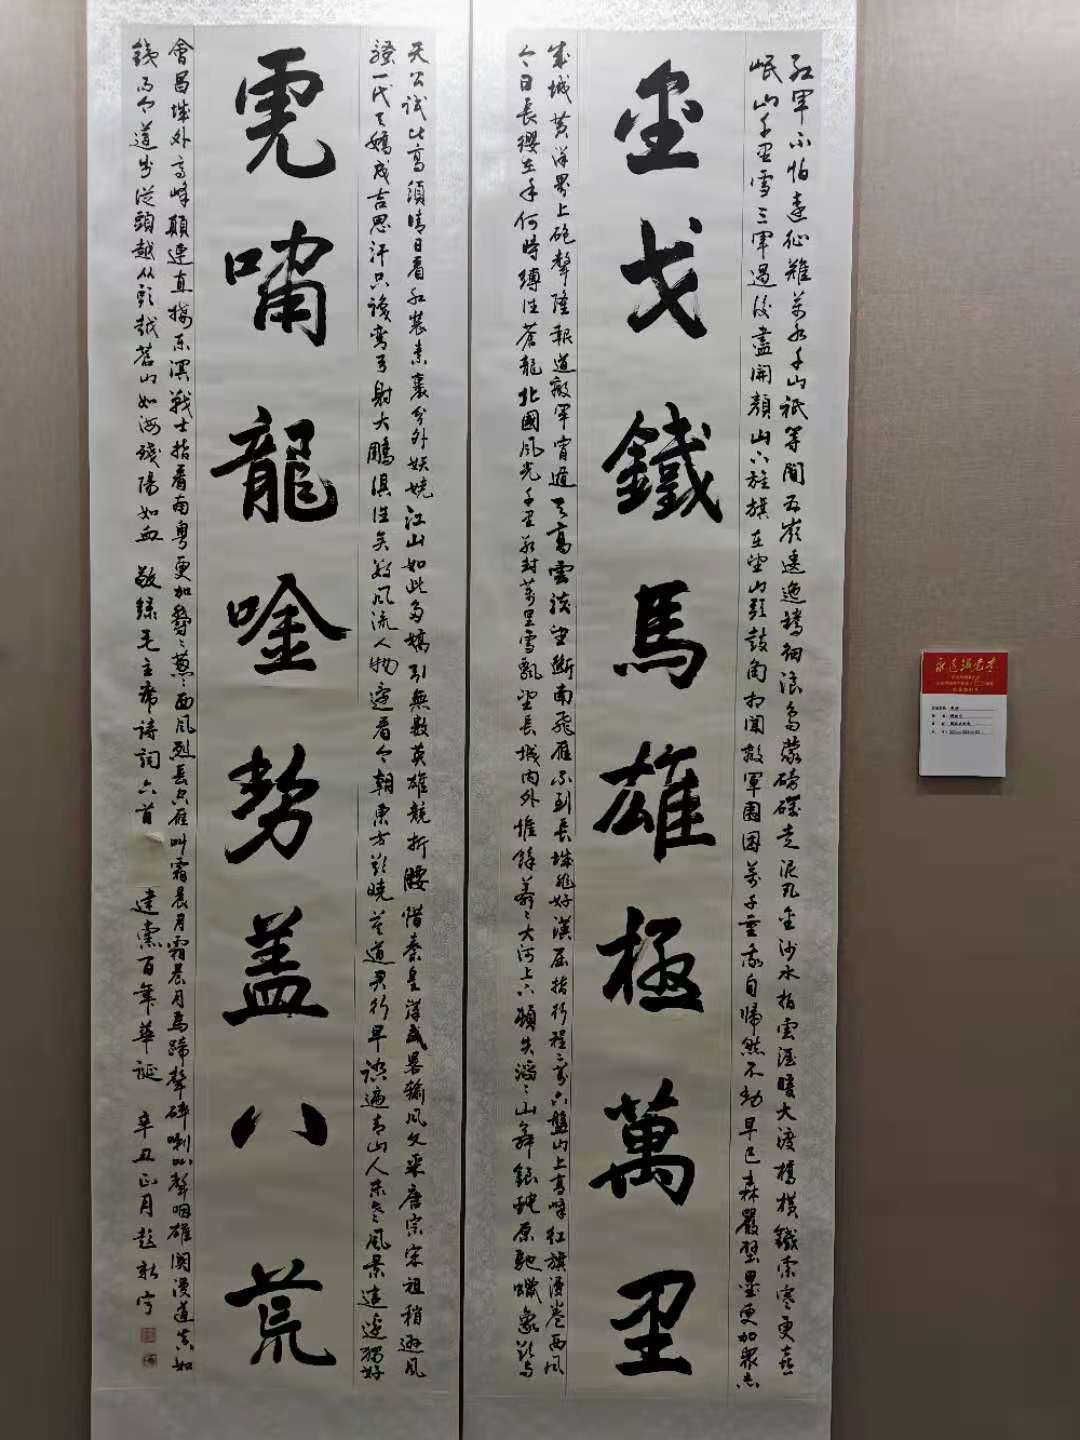 紅軍不怕遠征難萬水千山祇等閒五嶺逶迤騰細浪烏蒙磅礴走泥丸金沙水拍雲涯暖大渡橋橫鐵索寒更喜
岷山千里雪三軍過後盡開顏山下旌旗在望山頭鼓角相聞敵軍圍困萬千重我自歸然不動早已森嚴壁壘更加眾志
金戈鐵馬雄極萬里
成城黃洋界上砲聲隆報道敵軍宵遁天高雲淡望斷南飛雁不到長城非好漢屈指行程二萬六盤山上高峰紅旗漫卷西風
今日長纓在手何時縛住蒼龍北國風光千里冰封萬里雪飄望長城內外惟餘莽〻大河上下頓失滔〻山舞銀蛇原馳蠟象欲與
天公試比高須晴日看紅裝素裹分外妖嬈江山如此多嬌引無數英雄競折腰惜秦皇漢武畧輸風文采唐宗宋祖稍遜風
騷一代天驕成吉思汗只識彎弓射大鵰俱往矣數風流人物還看今朝東方欲曉莫道君行早踏遍青山人未老風景這邊獨好
虎嘯龍唫勢蓋八荒
會昌城外高峰顛連直接東溟戰士指看南粵更加鬱〻蔥〻西風烈長空雁叫霜晨月霜晨月馬蹄聲碎喇叭聲咽雄關漫道真如
鐵而今邁步從頭越從頭越蒼山如海殘陽如血 敬錄毛主席詩詞六首 建黨百年華誕 辛丑正月
永遠跟黨走